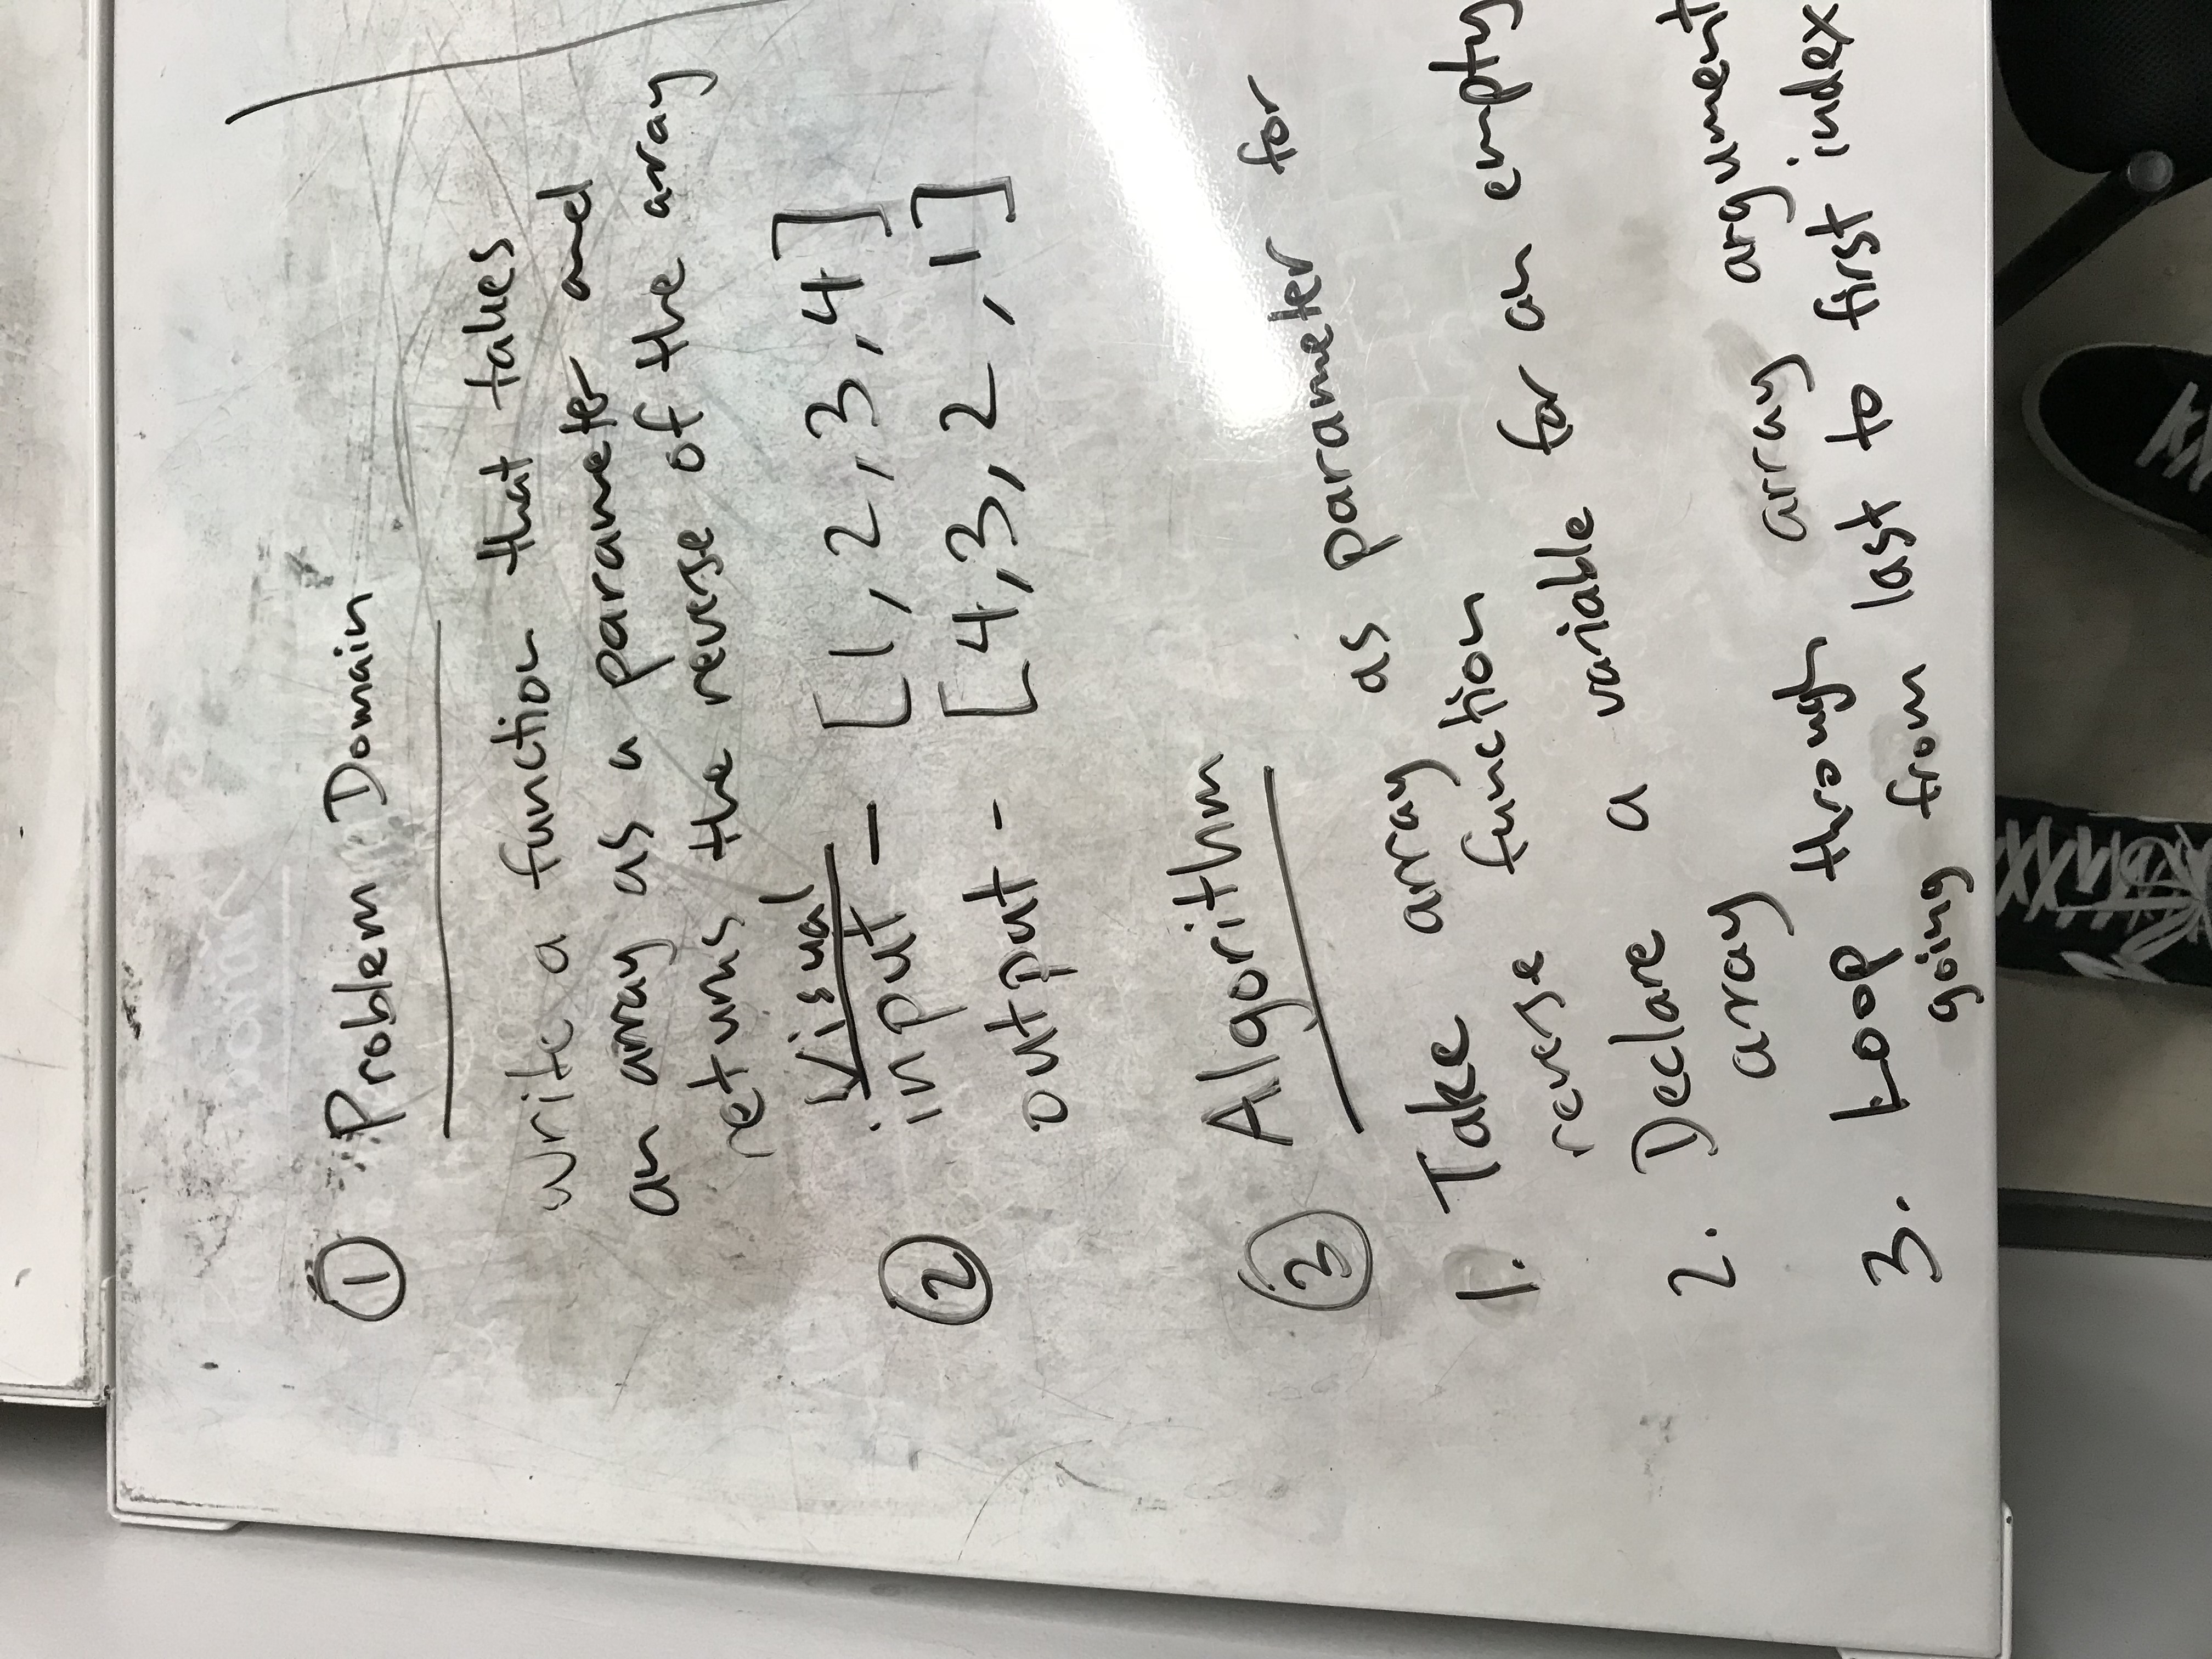 ① Problem Domain
write a function that takes
an array as a parameter and
returns the reverse of the array
Visual
② input - [1, 2, 3, 4]
output - [4, 3, 2, 1]
③ Algorithm
1. Take array as parameter for
reverse function
2. Declare a variable for an empty
array
3. Loop through array argument
going from last to first index